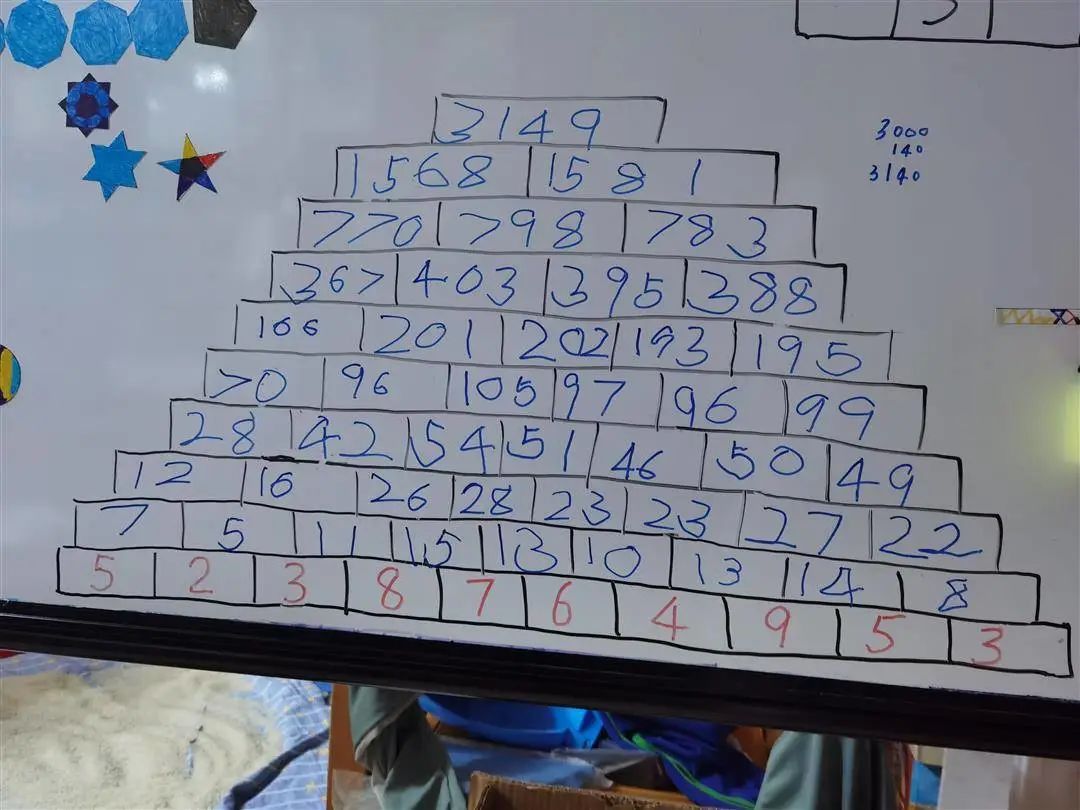 3149
1568 1581
770 798 783
367 403 395 388
166 201 202 193 195
70 96 105 97 96 99
28 42 54 51 46 50 49
12 16 26 28 23 23 27 22
7 5 11 15 13 10 13 14 8
5 2 3 8 7 6 4 9 5 3
3000
140
3140